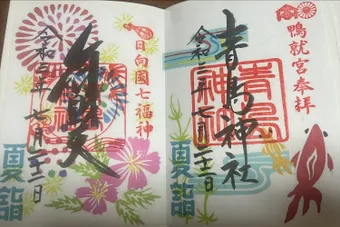 鴨就宮奉拝
青島神社
青島神社
令和二年七月二十二日
夏詣
日向國七福神
弁財天
令和二年七月二十二日
夏詣